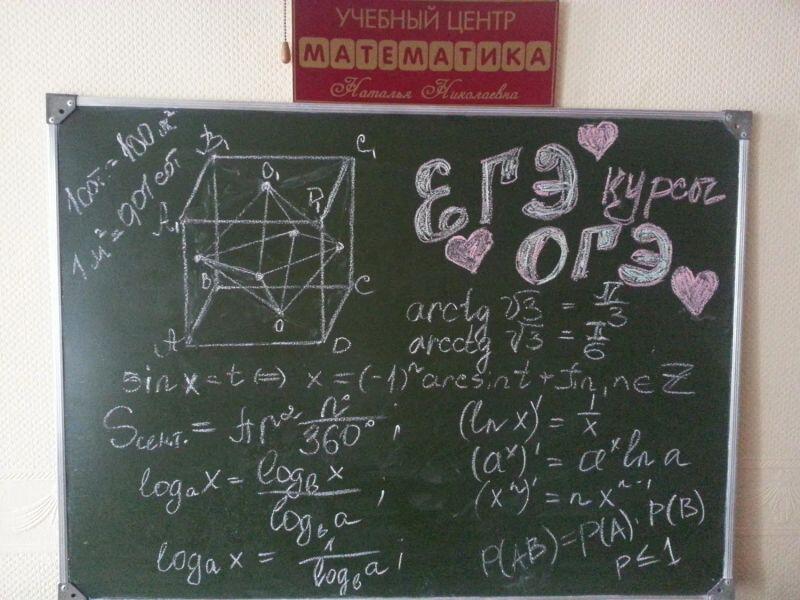 УЧЕБНЫЙ ЦЕНТР
МАТЕМАТИКА
Наталья Николаевна
1 сот. = 100 м²
1 м² = 0,01 сот
B₁
C₁
O₁
D₁
A₁
B
C
O
A
D
ЕГЭ курсы
ОГЭ
arctg √3 = π/3
arcctg √3 = π/6
sin x = t ⇔ x = (-1)ⁿ arcsin t + πn, n ∈ Z
Sсект. = πr² n°/360° ;
(ln x)' = 1/x
(aˣ)' = aˣ ln a
logₐ x = log_b x / log_b a ;
(xⁿ)' = n xⁿ⁻¹
P(AB) = P(A) · P(B)
logₐ x = 1 / log_b a ;
P ≤ 1